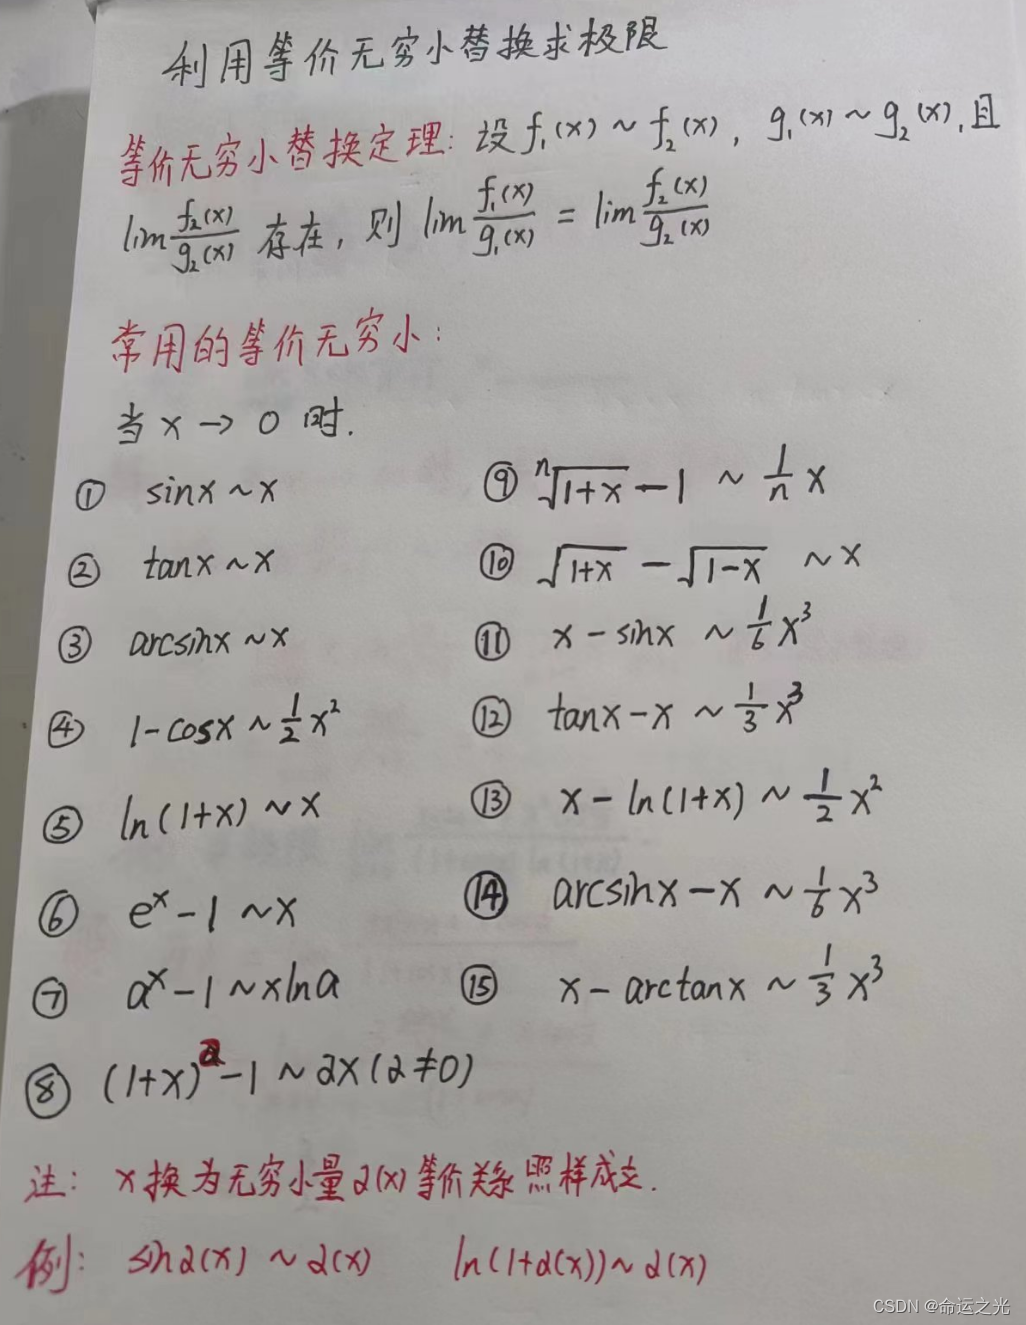 利用等价无穷小替换求极限
等价无穷小替换定理: 设 f₁(x) ~ f₂(x), g₁(x) ~ g₂(x), 且
lim f₂(x)/g₂(x) 存在, 则 lim f₁(x)/g₁(x) = lim f₂(x)/g₂(x)
常用的等价无穷小:
当 x → 0 时.
① sinx ~ x
② tanx ~ x
③ arcsinx ~ x
④ 1-cosx ~ 1/2 x²
⑤ ln(1+x) ~ x
⑥ eˣ-1 ~ x
⑦ aˣ-1 ~ xlna
⑧ (1+x)ᵅ-1 ~ αx (α≠0)
⑨ ⁿ√(1+x) - 1 ~ 1/n x
⑩ √(1+x) - √(1-x) ~ x
⑪ x - sinx ~ 1/6 x³
⑫ tanx - x ~ 1/3 x³
⑬ x - ln(1+x) ~ 1/2 x²
⑭ arcsinx - x ~ 1/6 x³
⑮ x - arctanx ~ 1/3 x³
注: x换为无穷小量α(x)等价关系照样成立.
例: sinα(x) ~ α(x) ln(1+α(x)) ~ α(x)
CSDN @命运之光